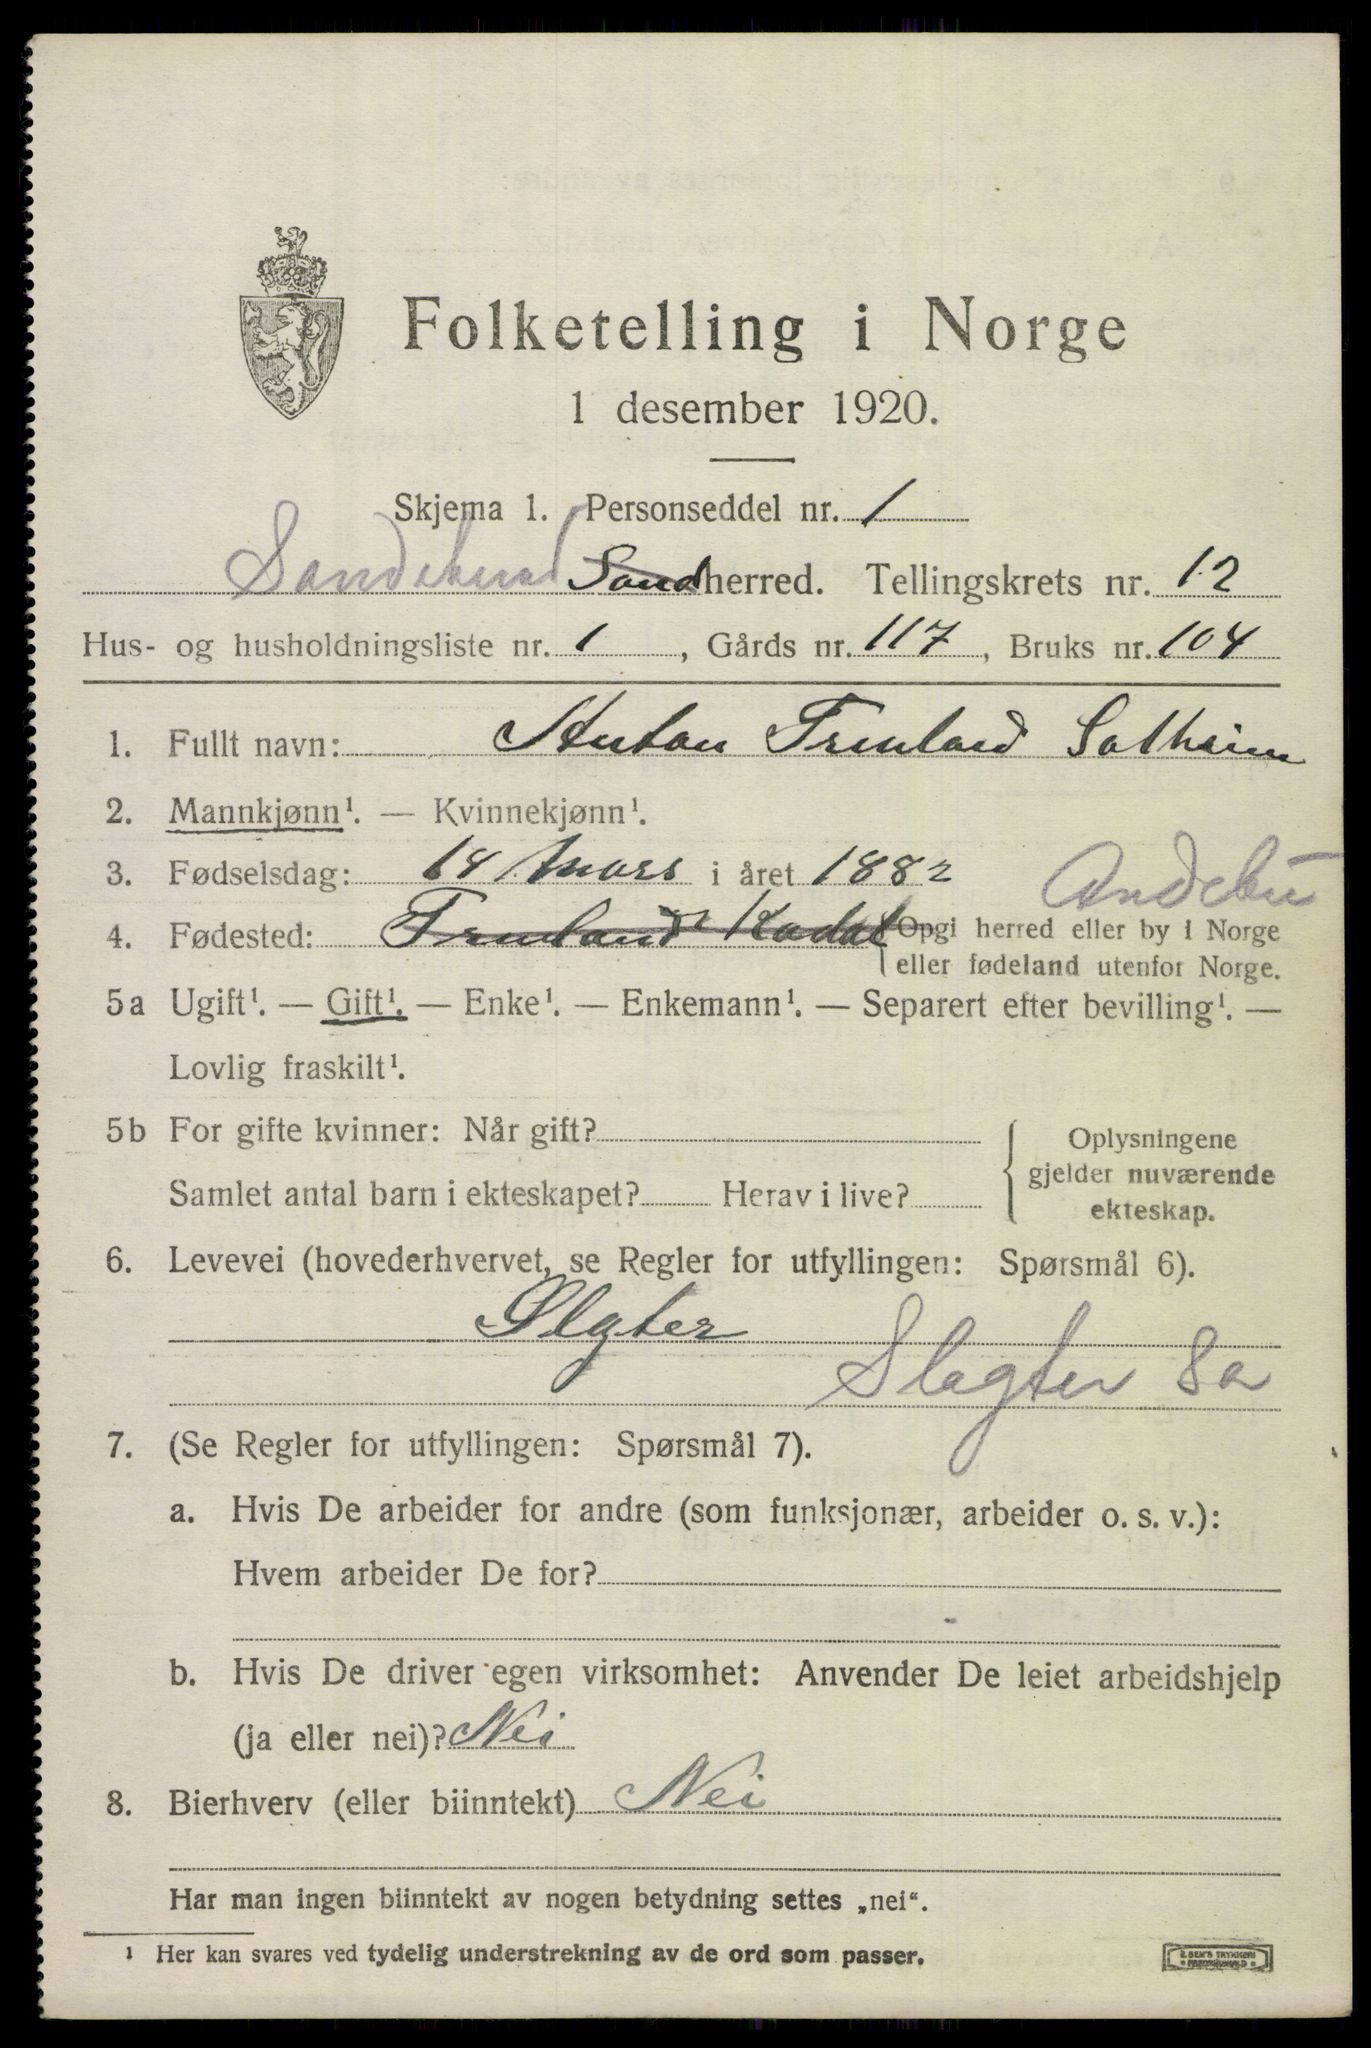 Folketelling i Norge
1 desember 1920.
Skjema 1. Personseddel nr. 1
Sandeherred Sandherred. Tellingskrets nr. 12
Hus- og husholdningsliste nr. 1, Gårds nr. 117, Bruks nr. 104
1. Fullt navn: Anton Trevland Solheim
2. Mannkjønn¹. — Kvinnekjønn¹.
3. Fødselsdag: 14 Mars i året 1882 Andebu
4. Fødested: Trevland Kodal Opgi herred eller by i Norge
eller fødeland utenfor Norge.
5a Ugift¹. — Gift¹. — Enke¹. — Enkemann¹. — Separert efter bevilling¹. —
Lovlig fraskilt¹.
5b For gifte kvinner: Når gift?
Samlet antal barn i ekteskapet? Herav i live?
Oplysningene
gjelder nuværende
ekteskap.
6. Levevei (hovederhvervet, se Regler for utfyllingen: Spørsmål 6).
Slgter
Slagter Sa
7. (Se Regler for utfyllingen: Spørsmål 7).
a. Hvis De arbeider for andre (som funksjonær, arbeider o. s. v.):
Hvem arbeider De for?
b. Hvis De driver egen virksomhet: Anvender De leiet arbeidshjelp
(ja eller nei)? Nei
8. Bierhverv (eller biinntekt) Nei
Har man ingen biinntekt av nogen betydning settes „nei“.
¹ Her kan svares ved tydelig understrekning av de ord som passer.